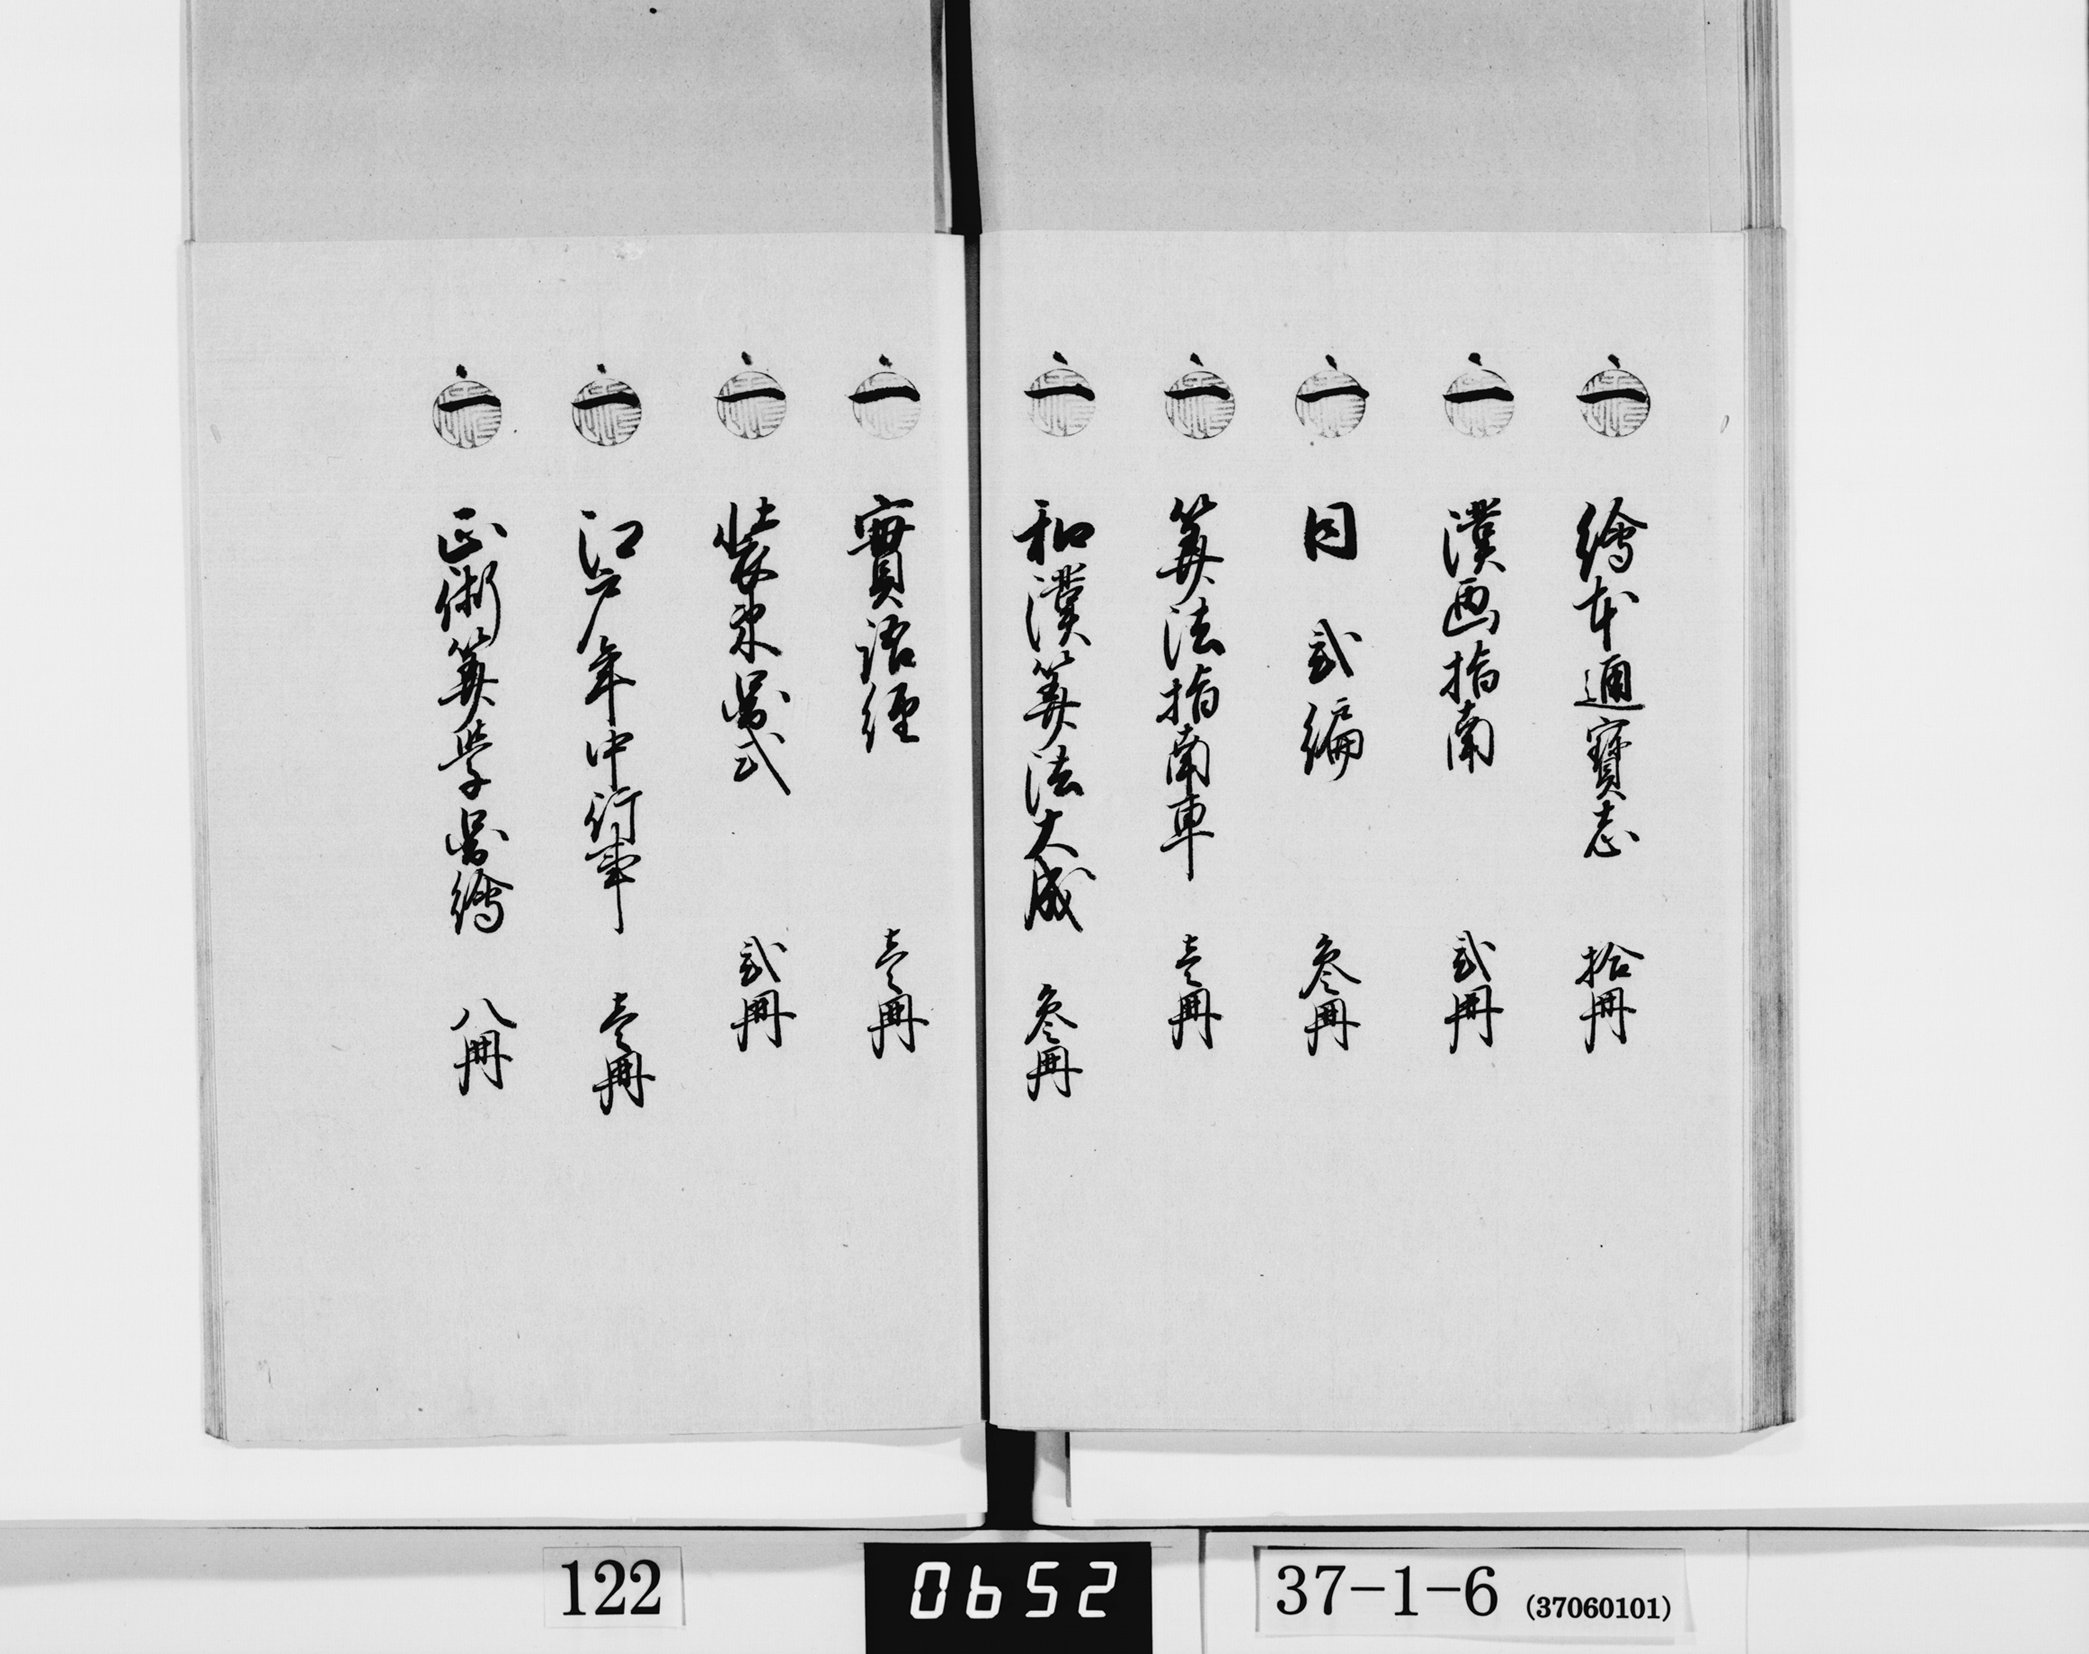 一 繪本通寶志 拾冊
一 漢画指南 弐冊
一 同 弐編 叄冊
一 筭法指南車 壱冊
一 和漢筭法大成 叄冊
一 實語経 壱冊
一 装束啚式 弐冊
一 江戸年中行事 壱冊
一 正術筭学啚繪 八冊
122
0652
37-1-6 (37060101)